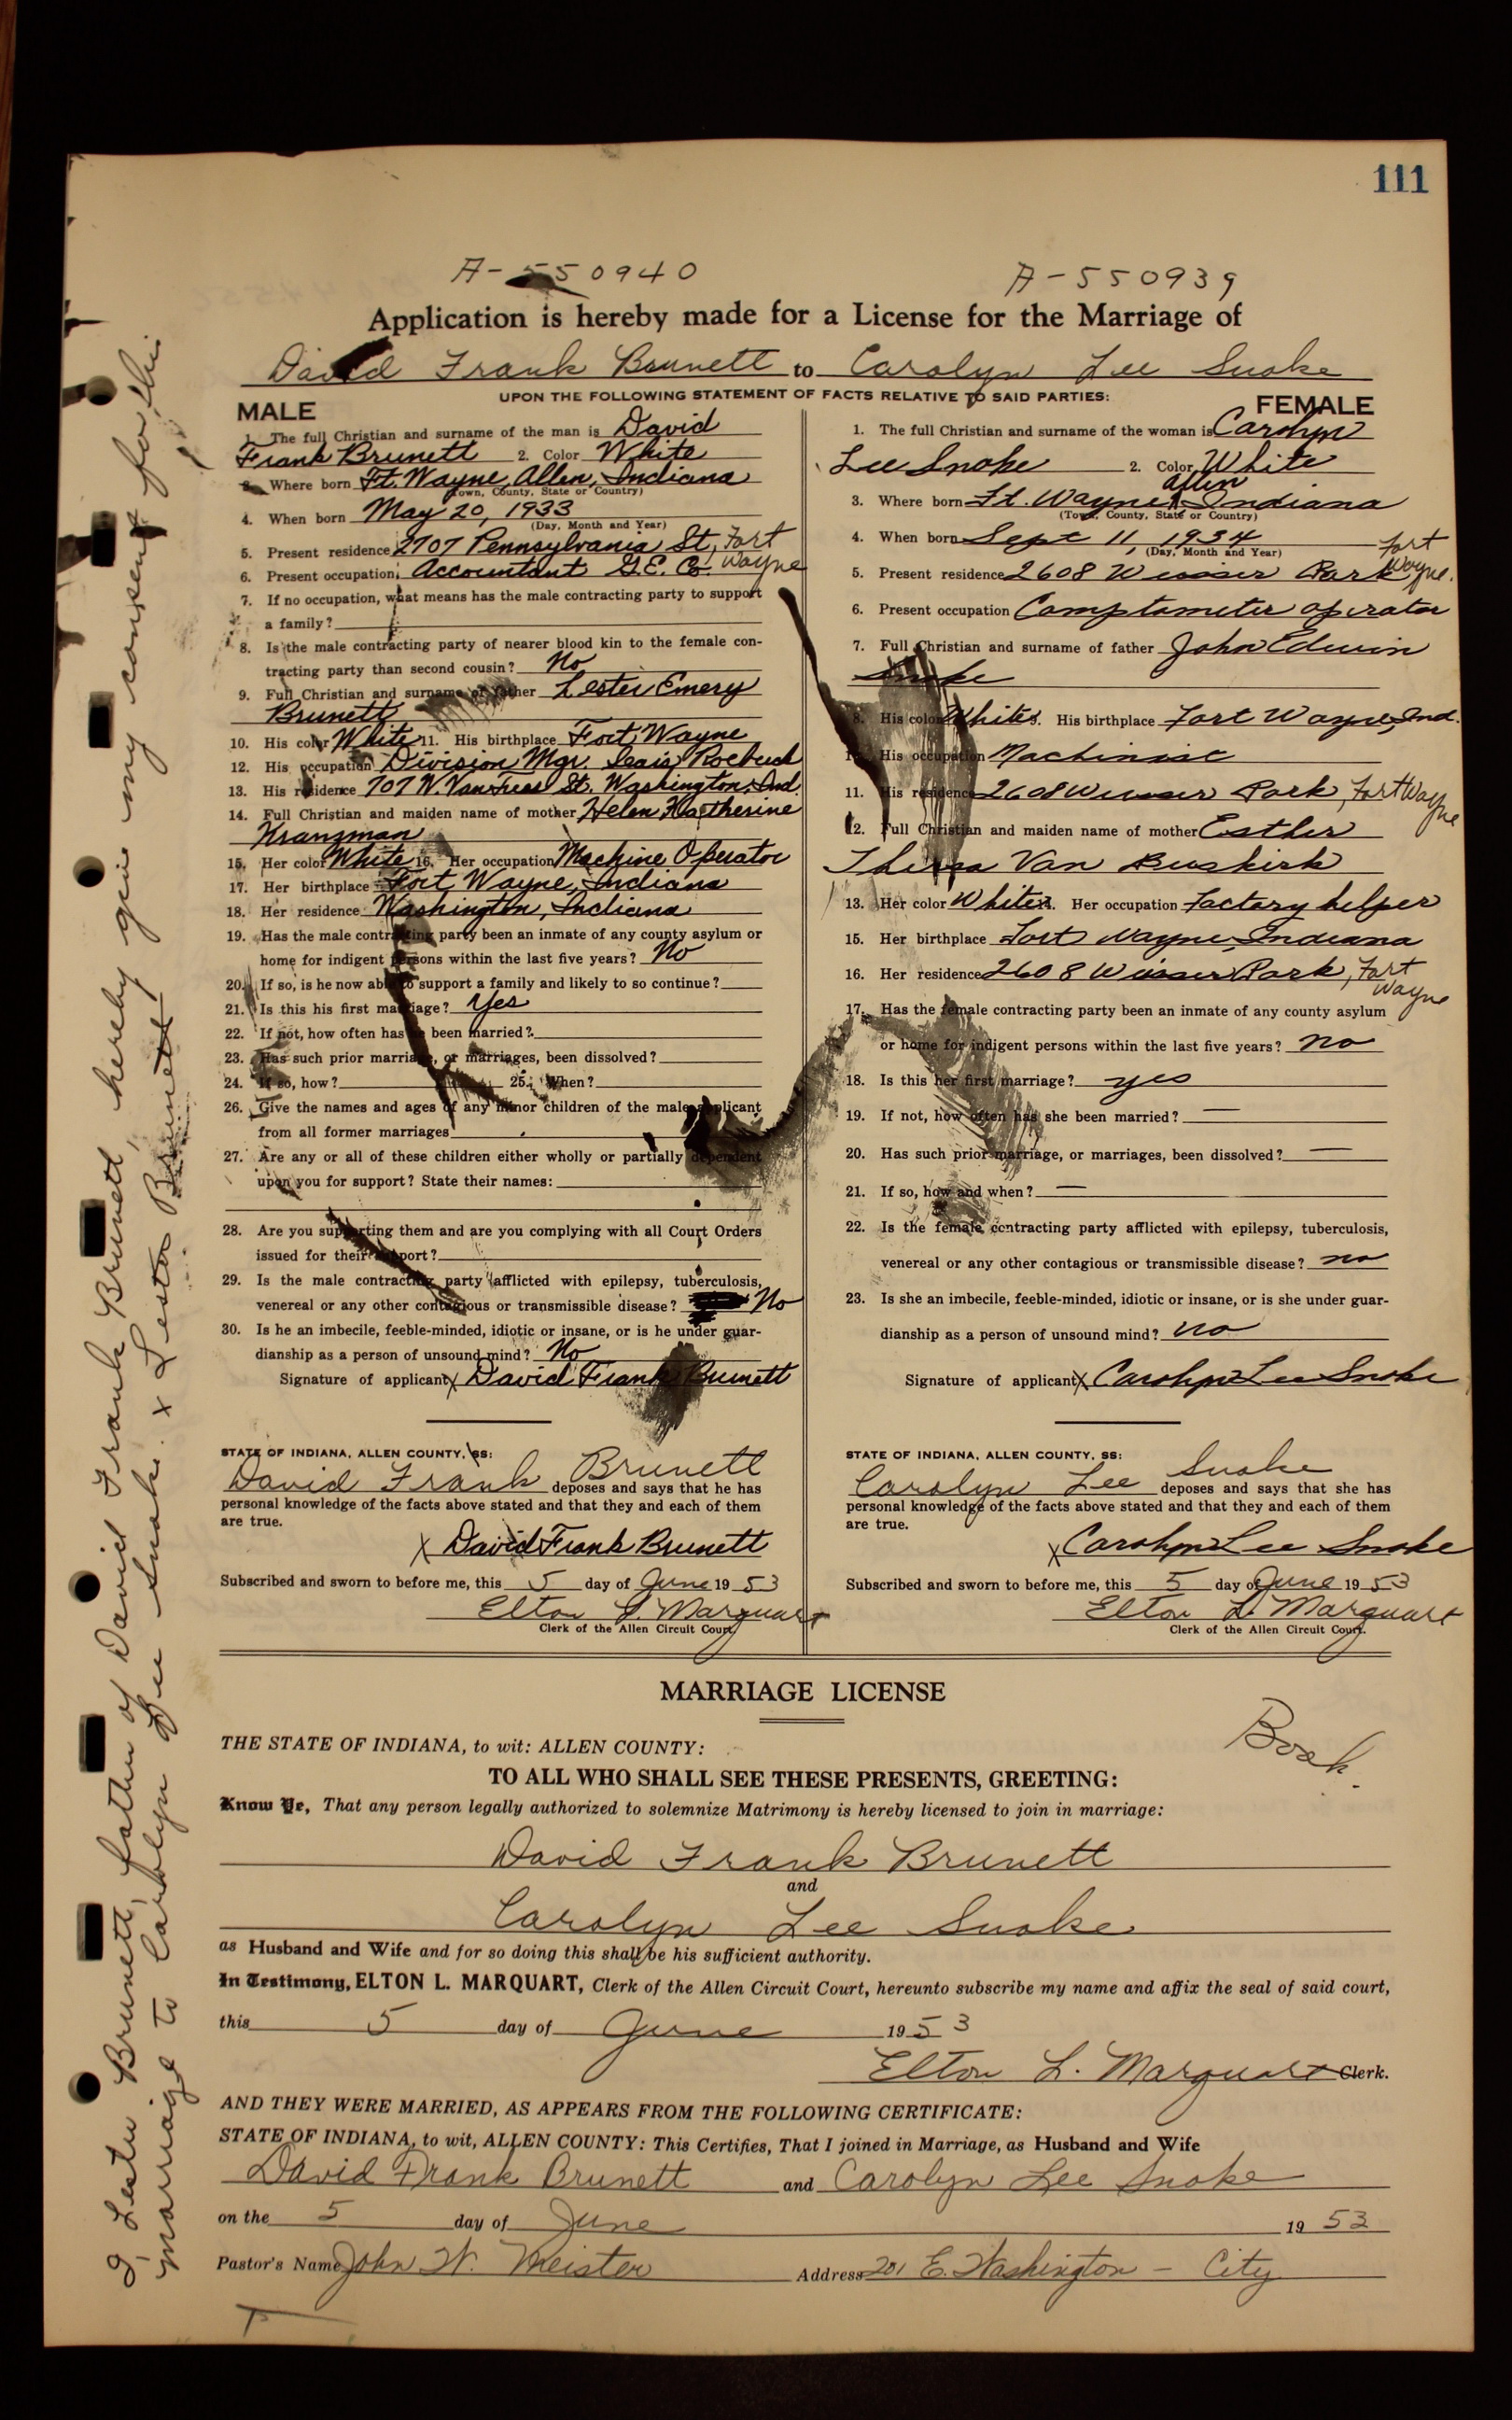 111
A-550940 A-550939
Application is hereby made for a License for the Marriage of
David Frank Brunett to Carolyn Lee Snoke
UPON THE FOLLOWING STATEMENT OF FACTS RELATIVE TO SAID PARTIES:
MALE
1. The full Christian and surname of the man is David
Frank Brunett 2. Color White
3. Where born Ft. Wayne, Allen, Indiana
(Town, County, State or Country)
4. When born May 20, 1933
(Day, Month and Year)
5. Present residence 2707 Pennsylvania St, Fort
Wayne
6. Present occupation Accountant G.E. Co.
7. If no occupation, what means has the male contracting party to support
a family?
8. Is the male contracting party of nearer blood kin to the female con-
tracting party than second cousin? No
9. Full Christian and surname of father Lester Emery
Brunett
10. His color White 11. His birthplace Fort Wayne
12. His occupation Division Mgr. Sears Roebuck
13. His residence 707 W. VanTrees St. Washington, Ind.
14. Full Christian and maiden name of mother Helen Katherine
Kranzman
15. Her color White 16. Her occupation Machine Operator
17. Her birthplace Fort Wayne, Indiana
18. Her residence Washington, Indiana
19. Has the male contracting party been an inmate of any county asylum or
home for indigent persons within the last five years? No
20. If so, is he now able to support a family and likely to so continue?
21. Is this his first marriage? Yes
22. If not, how often has he been married?
23. Has such prior marriage, or marriages, been dissolved?
24. If so, how? 25. When?
26. Give the names and ages of any minor children of the male applicant
from all former marriages
27. Are any or all of these children either wholly or partially dependent
upon you for support? State their names:
28. Are you supporting them and are you complying with all Court Orders
issued for their support?
29. Is the male contracting party afflicted with epilepsy, tuberculosis,
venereal or any other contagious or transmissible disease? No
30. Is he an imbecile, feeble-minded, idiotic or insane, or is he under guar-
dianship as a person of unsound mind? No
Signature of applicant X David Frank Brunett
STATE OF INDIANA, ALLEN COUNTY, SS:
David Frank Brunett deposes and says that he has
personal knowledge of the facts above stated and that they and each of them
are true.
X David Frank Brunett
Subscribed and sworn to before me, this 5 day of June 1953
Elton L. Marquart
Clerk of the Allen Circuit Court.
FEMALE
1. The full Christian and surname of the woman is Carolyn
Lee Snoke 2. Color White
Allen
3. Where born Ft. Wayne, Indiana
(Town, County, State or Country)
4. When born Sept 11, 1934
(Day, Month and Year)
5. Present residence 2608 Weisser Park Fort
Wayne.
6. Present occupation Comptometer operator
7. Full Christian and surname of father John Edwin
Snoke
8. His color White 9. His birthplace Fort Wayne, Ind.
10. His occupation Machinist
11. His residence 2608 Weisser Park, Fort Wayne
12. Full Christian and maiden name of mother Esther
Van Buskirk
13. Her color White 14. Her occupation Factory helper
15. Her birthplace Fort Wayne, Indiana
16. Her residence 2608 Weisser Park, Fort
Wayne
17. Has the female contracting party been an inmate of any county asylum
or home for indigent persons within the last five years? no
18. Is this her first marriage? yes
19. If not, how often has she been married? —
20. Has such prior marriage, or marriages, been dissolved? —
21. If so, how and when? —
22. Is the female contracting party afflicted with epilepsy, tuberculosis,
venereal or any other contagious or transmissible disease? no
23. Is she an imbecile, feeble-minded, idiotic or insane, or is she under guar-
dianship as a person of unsound mind? no
Signature of applicant X Carolyn Lee Snoke
STATE OF INDIANA, ALLEN COUNTY, SS:
Carolyn Lee Snoke deposes and says that she has
personal knowledge of the facts above stated and that they and each of them
are true.
X Carolyn Lee Snoke
Subscribed and sworn to before me, this 5 day of June 1953
Elton L. Marquart
Clerk of the Allen Circuit Court.
MARRIAGE LICENSE
THE STATE OF INDIANA, to wit: ALLEN COUNTY:
TO ALL WHO SHALL SEE THESE PRESENTS, GREETING:
Know Ye, That any person legally authorized to solemnize Matrimony is hereby licensed to join in marriage:
David Frank Brunett
and
Carolyn Lee Snoke
as Husband and Wife and for so doing this shall be his sufficient authority.
In Testimony, ELTON L. MARQUART, Clerk of the Allen Circuit Court, hereunto subscribe my name and affix the seal of said court,
this 5 day of June 1953
Elton L. Marquart Clerk.
AND THEY WERE MARRIED, AS APPEARS FROM THE FOLLOWING CERTIFICATE:
STATE OF INDIANA, to wit, ALLEN COUNTY: This Certifies, That I joined in Marriage, as Husband and Wife
David Frank Brunett and Carolyn Lee Snoke
on the 5 day of June 1953
Pastor's Name John W. Meister Address 201 E. Washington - City
I, Lester Brunett, father of David Frank Brunett, hereby give my consent for his
marriage to Carolyn Lee Snoke. x Lester Brunett